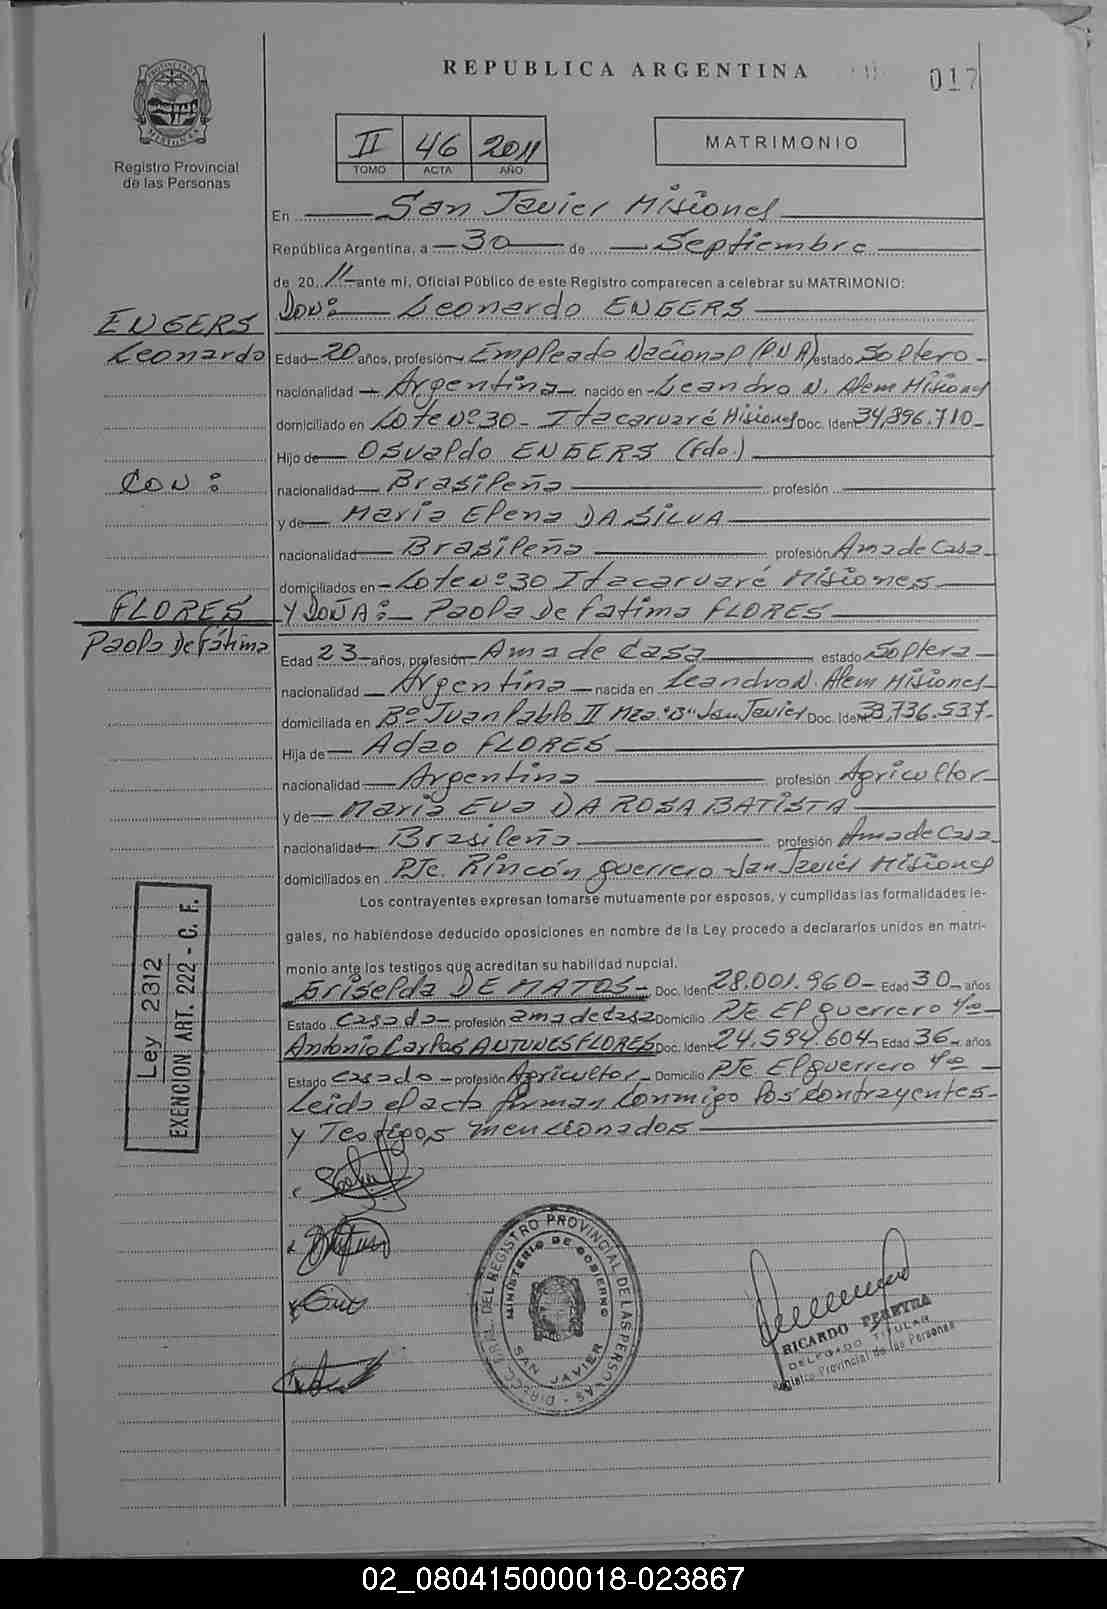 REPUBLICA ARGENTINA
017
PROVINCIA DE MISIONES
Registro Provincial
de las Personas
II 46 2011
TOMO ACTA AÑO
MATRIMONIO
En San Javier Misiones
República Argentina, a 30 de Septiembre
de 20 11 ante mi, Oficial Público de este Registro comparecen a celebrar su MATRIMONIO:
ENGERS Don: Leonardo ENGERS
Leonardo Edad 20 años, profesión Empleado Nacional (P.N.A) estado Soltero
nacionalidad Argentina nacido en Leandro N. Alem Misiones
domiciliado en Lote Nº 30 - Itacaruaré Misiones Doc. Ident 34,896.710
Hijo de Osvaldo ENGERS (Fdo.)
CON: nacionalidad Brasileña profesión
y de Maria Elena DA SILVA
nacionalidad Brasileña profesión Ama de Casa
domiciliados en Lote Nº 30 Itacaruaré Misiones
FLORES Y DOÑA: Paola De Fatima FLORES
Paola De Fátima Edad 23 años, profesión Ama de Casa estado Soltera
nacionalidad Argentina nacida en Leandro N. Alem Misiones
domiciliada en Bº Juan Pablo II Mza. "B" San Javier Doc. Ident 33,736.537
Hija de Adao FLORES
nacionalidad Argentina profesión Agricultor
y de Maria Eva DA ROSA BATISTA
nacionalidad Brasileña profesión Ama de Casa
domiciliados en Pje. Rincón Guerrero San Javier Misiones
Los contrayentes expresan tomarse mutuamente por esposos, y cumplidas las formalidades le-
gales, no habiéndose deducido oposiciones en nombre de la Ley procedo a declararlos unidos en matri-
monio ante los testigos que acreditan su habilidad nupcial.
Griselda DE MATOS Doc. Ident 28.001.960 Edad 30 años
Estado Casada profesión ama de Casa Domicilio Pje. El Guerrero
Antonio Carlos ANTUNES FLORES Doc. Ident 24.594.604 Edad 36 años
Estado Casado profesión Agricultor Domicilio Pje. El Guerrero
Leida el acta firman conmigo los contrayentes
y Testigos mencionados
Ley 2312
EXENCION ART. 222 - C. F.
DIRECC. GRAL. DEL REGISTRO PROVINCIAL DE LAS PERSONAS
MINISTERIO DE GOBIERNO
SAN JAVIER
RICARDO PEREYRA
DELEGADO TITULAR
Registro Provincial de las Personas
02_080415000018-023867